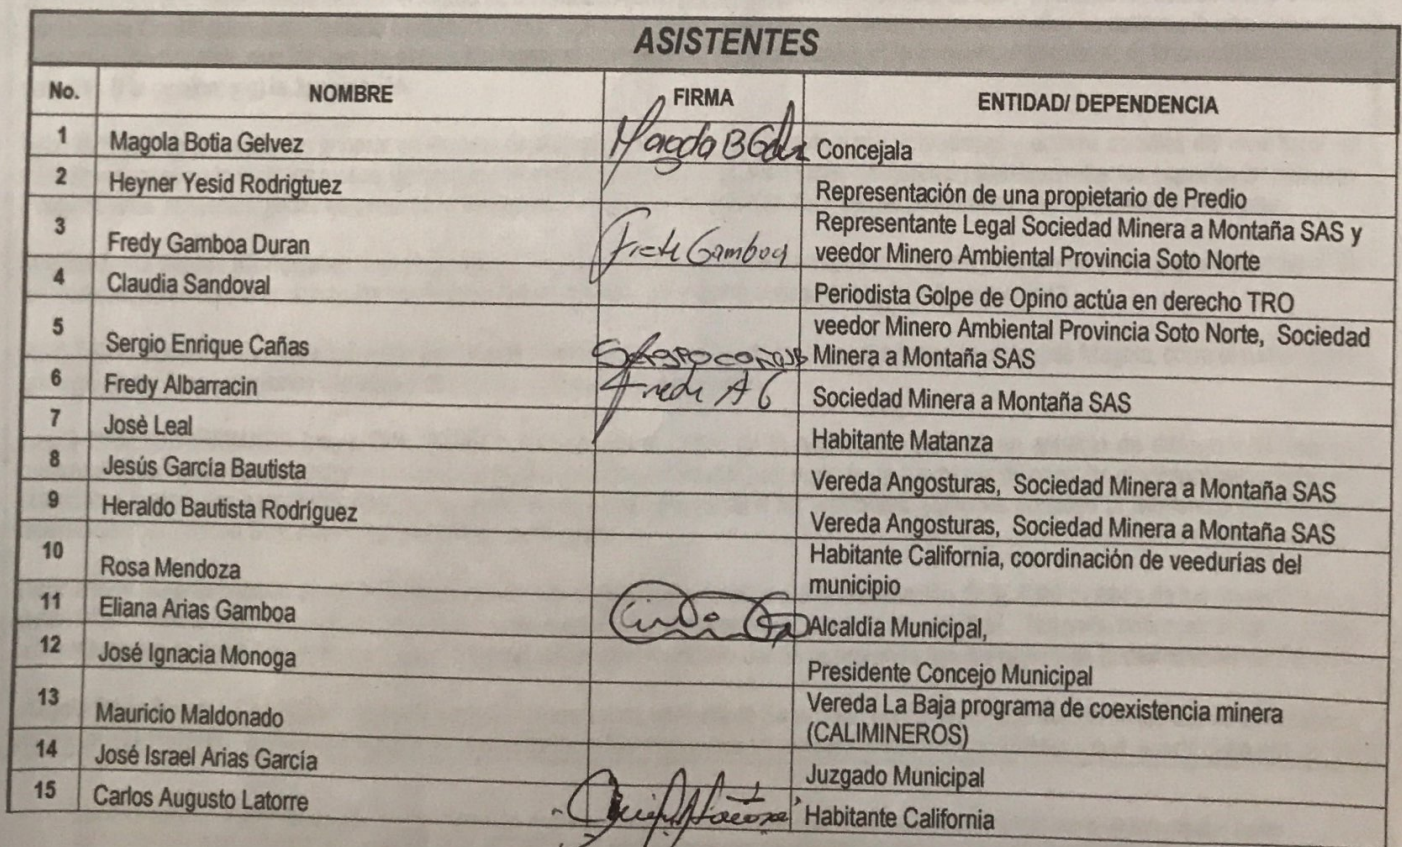 ASISTENTES
No. NOMBRE FIRMA ENTIDAD/ DEPENDENCIA
1 Magola Botia Gelvez Magola B Concejala
2 Heyner Yesid Rodrigtuez Representación de una propietario de Predio
3 Fredy Gamboa Duran Gamboa Representante Legal Sociedad Minera a Montaña SAS y
veedor Minero Ambiental Provincia Soto Norte
4 Claudia Sandoval Periodista Golpe de Opino actúa en derecho TRO
5 Sergio Enrique Cañas veedor Minero Ambiental Provincia Soto Norte, Sociedad
Minera a Montaña SAS
6 Fredy Albarracin Sociedad Minera a Montaña SAS
7 Josè Leal Habitante Matanza
8 Jesús García Bautista Vereda Angosturas, Sociedad Minera a Montaña SAS
9 Heraldo Bautista Rodríguez Vereda Angosturas, Sociedad Minera a Montaña SAS
10 Rosa Mendoza Habitante California, coordinación de veedurías del
municipio
11 Eliana Arias Gamboa Alcaldía Municipal,
12 José Ignacia Monoga Presidente Concejo Municipal
13 Mauricio Maldonado Vereda La Baja programa de coexistencia minera
(CALIMINEROS)
14 José Israel Arias García Juzgado Municipal
15 Carlos Augusto Latorre Habitante California